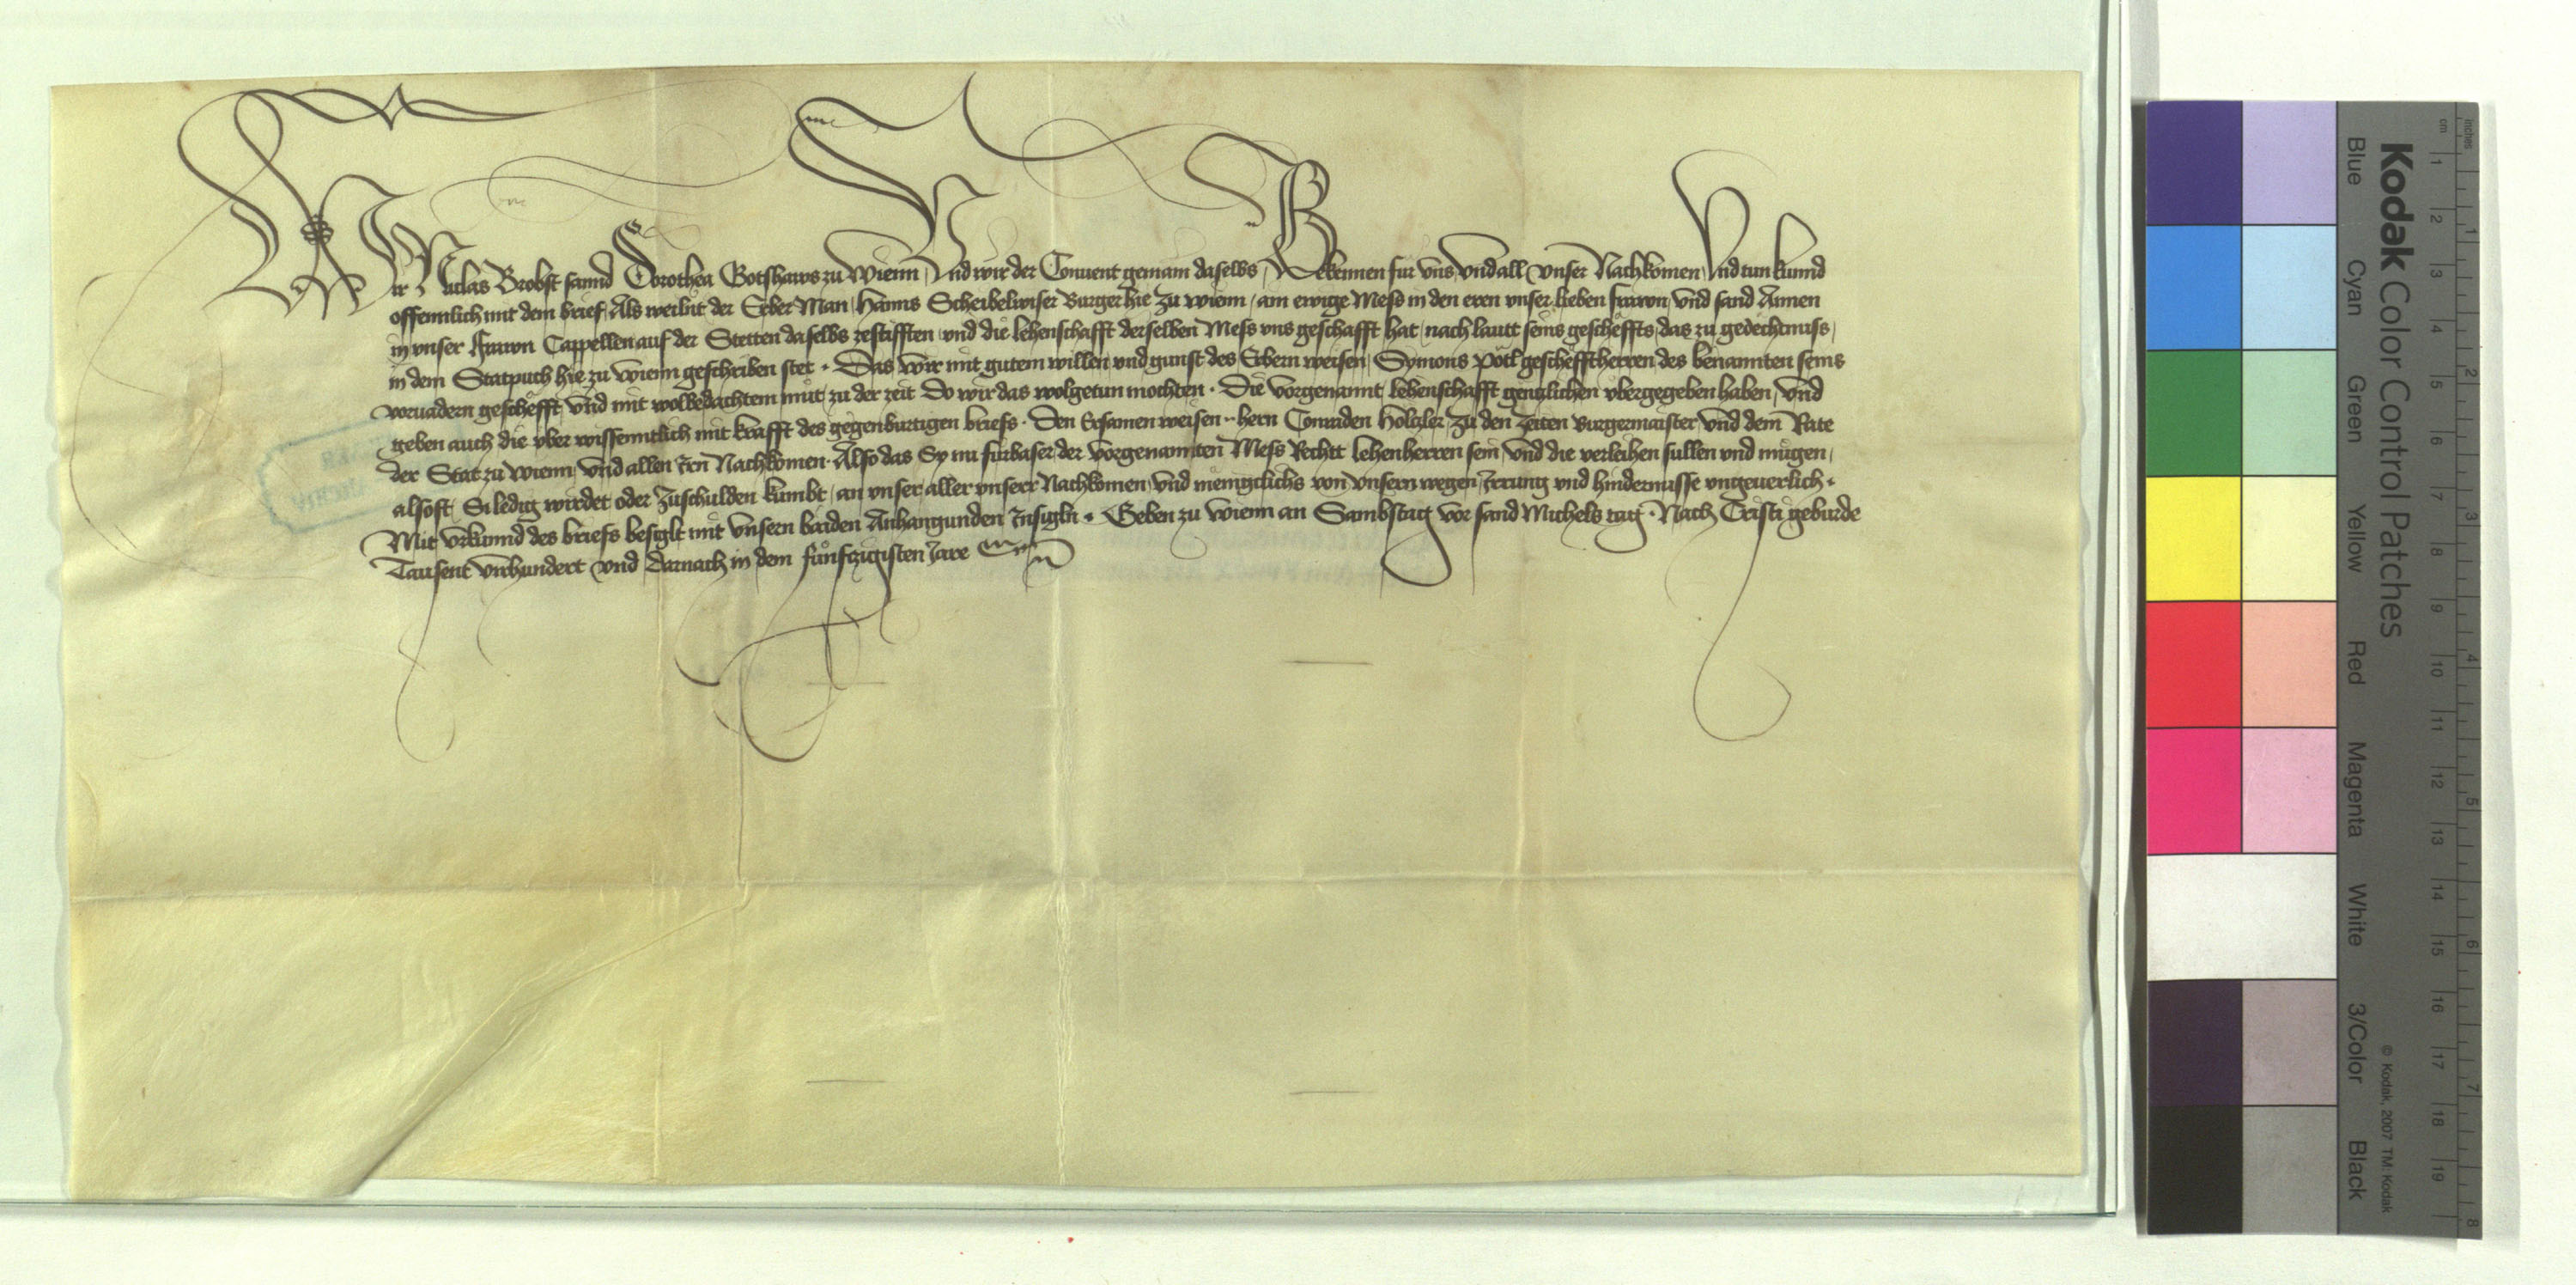 Wir Niclas Brobst sannd Dorothea Gotshaws zu Wienn, Und wir der Conuent gemain daselbs, Bekennen fur vns vnd all vnser Nachkomen, Und tun kunnd
offennlich mit dem brief, Als weilnt der Erber Man, Hanns Scheibelwiser Burger hie zu wienn, am ewige Mess in den eren vnser lieben frawn, vnd sand Annen
in vnser frawn Cappellen auf der Stetten daselbs zestifften, vnd die lehenschafft derselben Mess vns geschafft hat, nach lautt seins gescheffts, das zu gedechtnuss,
in dem Statpuch hie zu wienn geschriben stet. Das wir mit gutem willen vnd gunst des Erbern weisen, Symons Pötl gescheftherren des benannten seins
voruadern gschefft, vnd mit wolbedachtem mut, zu der zeit Do wir das wolgetun mochten. Die vorgenannt lehenschafft genczlichen vbergegeben haben, vnd
geben auch die vber wissenntlich mit krafft des gegenburtigen briefs. Den Ersamen weisen .. hern Conraden Hölczler zu den zeiten Burgermaister, vnd dem Rate
der Stat zu wienn, vnd allen irn Nachkomen. Also das Sy nu furbaser der vorgenannten Mess Rechtt lehenherren sein, vnd die verleihen sullen vnd mügen,
alsofft, Si ledig wirdet oder zuschulden kumbt, an vnser aller vnserr Nachkomen, vnd menigclichs von vnsern wegen, Irrung vnd hindernusse vngeuerlich.
Mit vrkunnd des briefs besiglt mit vnsern baiden Anhangunden Insigln. Geben zu wienn an Sambstag vor sand Michels tag. Nach Cristi geburde
Tausent vierhundert vnd darnach in dem funfczigisten Jare
Kodak Color Control Patches
Blue Cyan Green Yellow Red Magenta White 3/Color Black
© Kodak, 2007 TM: Kodak
inches 1 2 3 4 5 6 7 8
cm 1 2 3 4 5 6 7 8 9 10 11 12 13 14 15 16 17 18 19